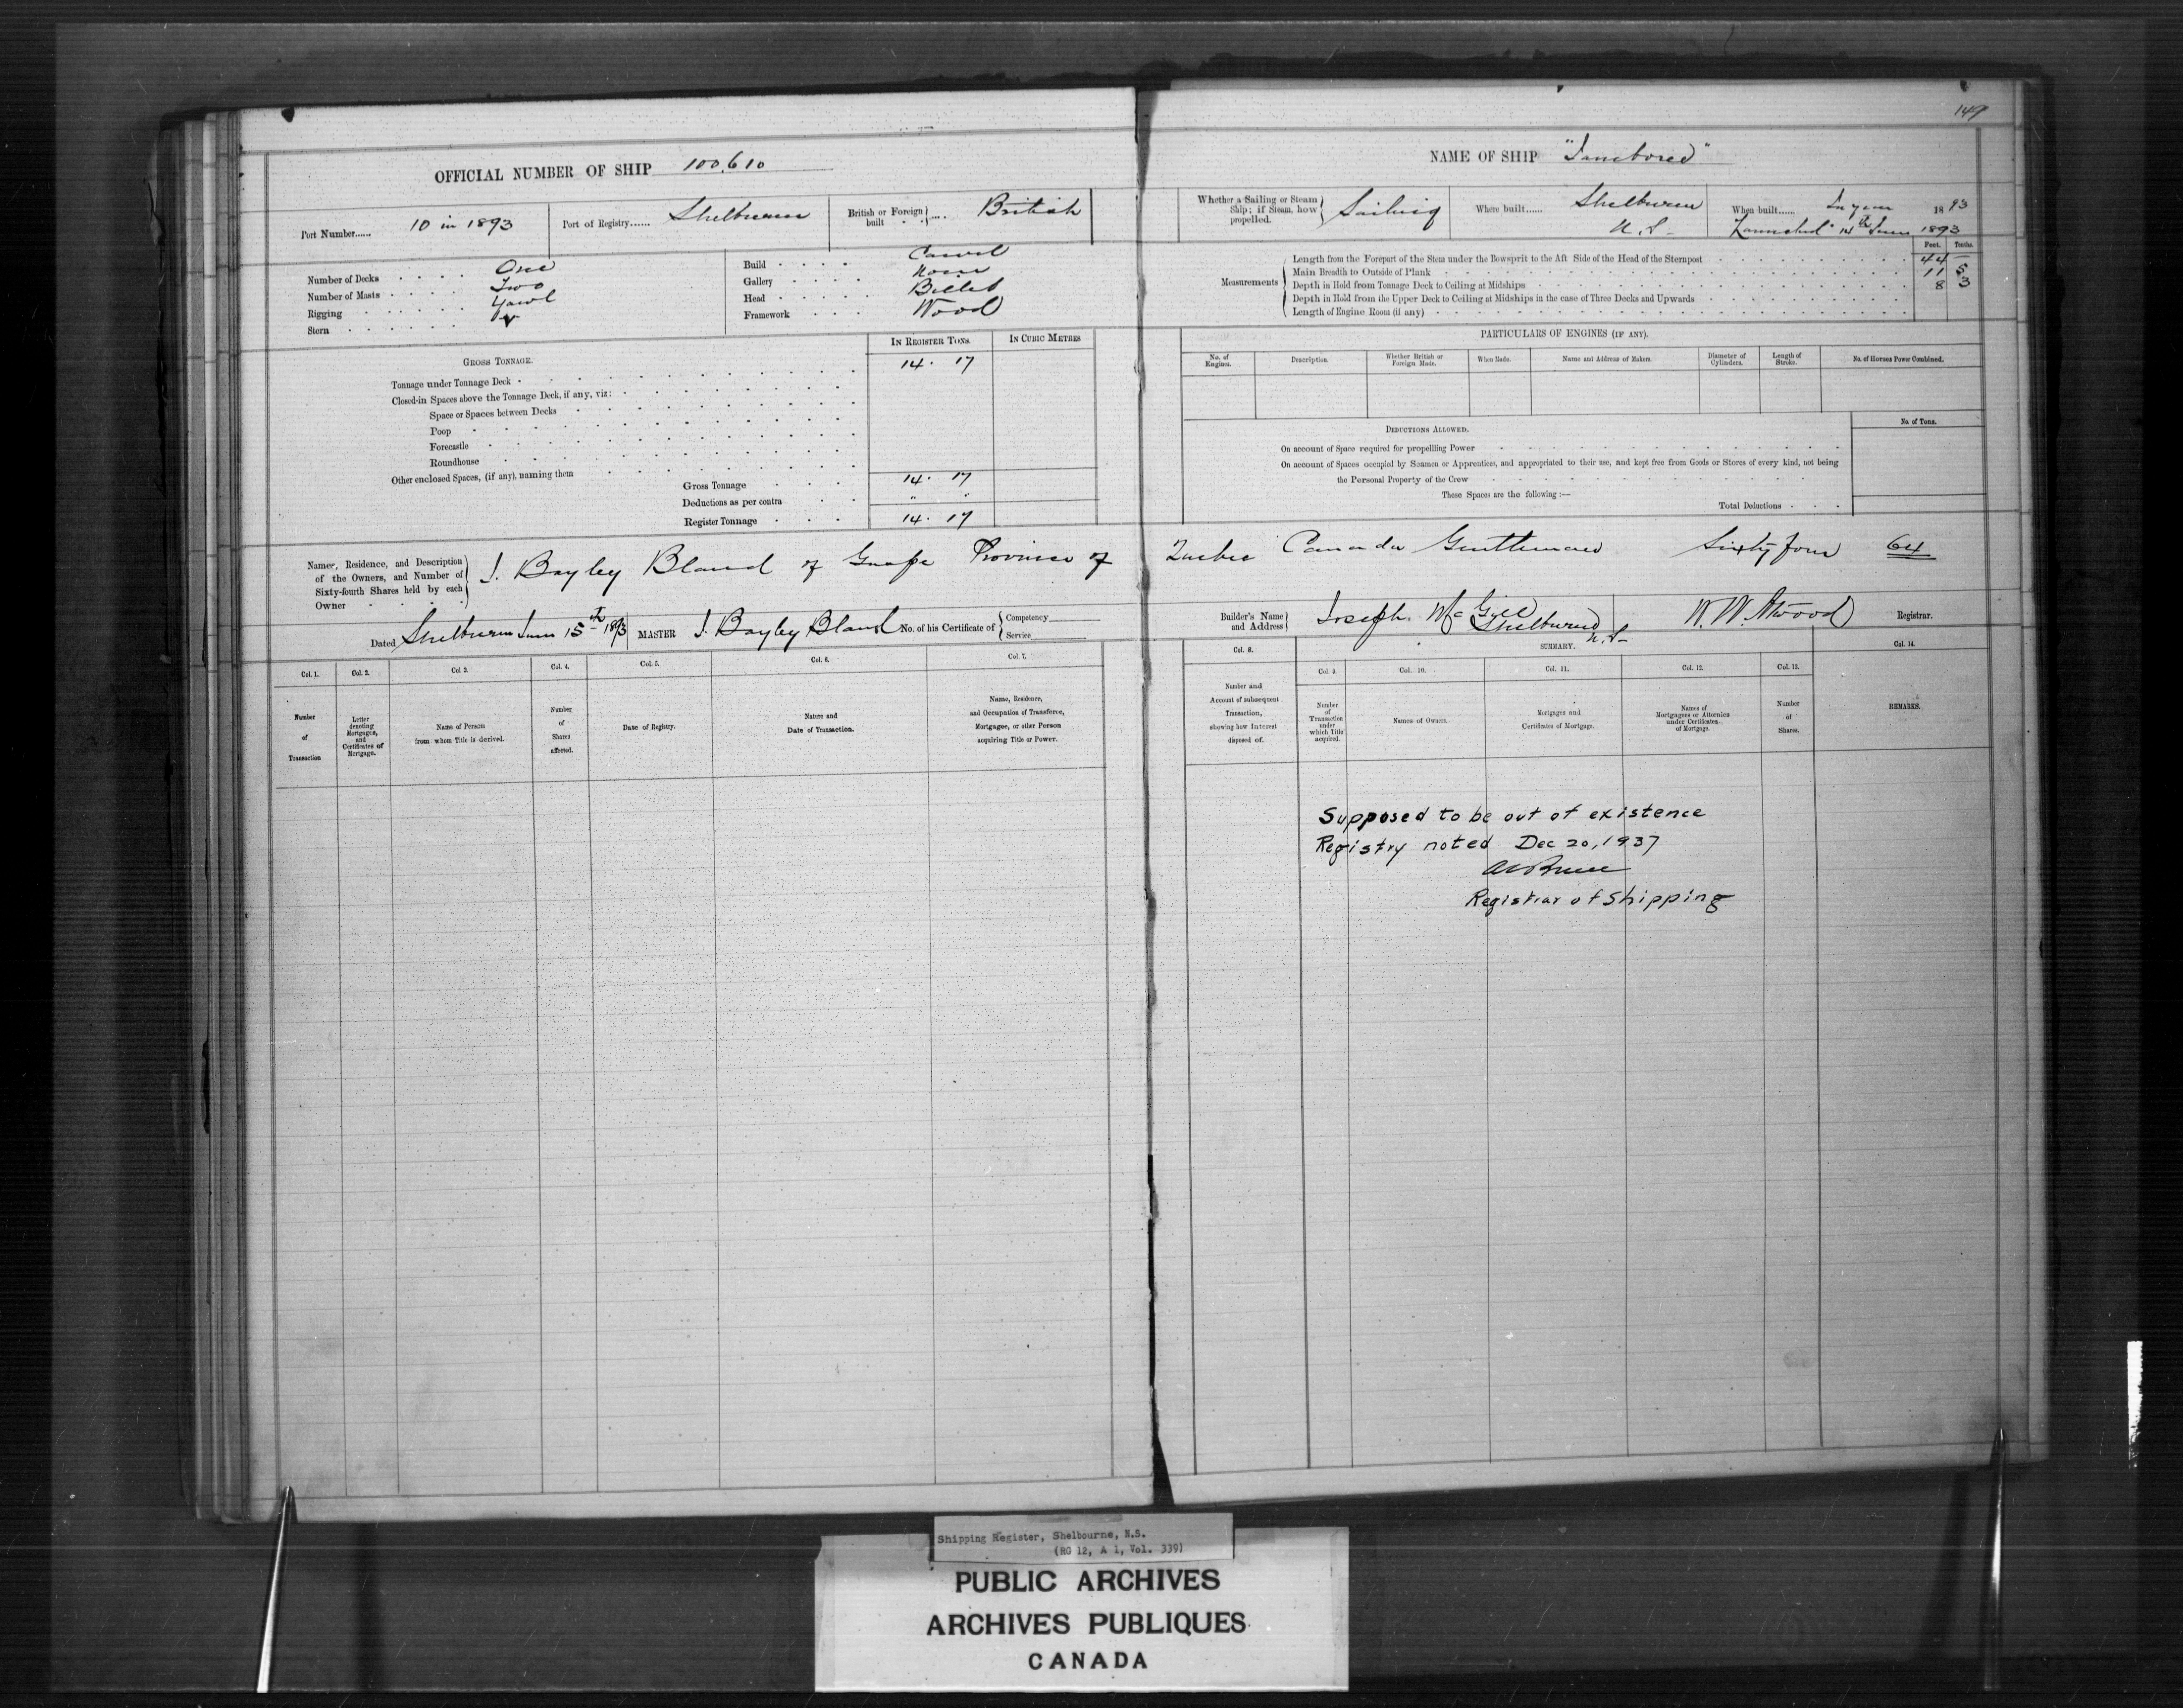 147
OFFICIAL NUMBER OF SHIP 100,610
Port Number...... 10 in 1893
Port of Registry...... Shelburne
British or Foreign built .... British
Number of Decks One
Number of Masts Two
Rigging Yawl
Stern
Build Carvel
Gallery None
Head Billet
Framework Wood
IN REGISTER TONS. IN CUBIC METRES
GROSS TONNAGE.
Tonnage under Tonnage Deck 14. 17
Closed-in Spaces above the Tonnage Deck, if any, viz:
Space or Spaces between Decks
Poop
Forecastle
Roundhouse
Other enclosed Spaces, (if any), naming them
Gross Tonnage 14. 17
Deductions as per contra " "
Register Tonnage 14. 17
NAME OF SHIP
Whether a Sailing or Steam Ship; if Steam, how propelled. Sailing
Where built...... Shelburne N.S.
When built...... In year 1893
Launched 14th June 1893
Feet. Tenths.
Measurements
Length from the Forepart of the Stem under the Bowsprit to the Aft Side of the Head of the Sternpost 44 –
Main Breadth to Outside of Plank 11 5
Depth in Hold from Tonnage Deck to Ceiling at Midships 8 3
Depth in Hold from the Upper Deck to Ceiling at Midships in the case of Three Decks and Upwards
Length of Engine Room (if any)
PARTICULARS OF ENGINES (IF ANY).
No. of Engines. Description. Whether British or Foreign Made. When Made. Name and Address of Makers. Diameter of Cylinders. Length of Stroke. No. of Horses Power Combined.
DEDUCTIONS ALLOWED. No. of Tons.
On account of Space required for propelling Power
On account of Spaces occupied by Seamen or Apprentices, and appropriated to their use, and kept free from Goods or Stores of every kind, not being
the Personal Property of the Crew
These Spaces are the following :—
Total Deductions
Names, Residence, and Description
of the Owners, and Number of
Sixty-fourth Shares held by each
Owner
J. Bayley Bland of Gaspe Province of Quebec Canada Gentleman Sixty four 64
Dated Shelburne June 15th 1893
MASTER J. Bayley Bland No. of his Certificate of { Competency
Service
Builder's Name and Address } Joseph McGill
Shelburne N.S.
W. W. Atwood Registrar.
Col. 1. Col. 2. Col 3. Col. 4. Col. 5. Col. 6. Col. 7.
Number of Transaction
Letter denoting Mortgages, and Certificates of Mortgage.
Name of Person from whom Title is derived.
Number of Shares affected.
Date of Registry.
Nature and Date of Transaction.
Name, Residence, and Occupation of Transferee, Mortgagee, or other Person acquiring Title or Power.
SUMMARY.
Col. 8. Col. 9. Col. 10. Col. 11. Col. 12. Col. 13. Col. 14.
Number and Account of subsequent Transaction, showing how Interest disposed of.
Number of Transaction under which Title acquired.
Names of Owners.
Mortgages and Certificates of Mortgage.
Names of Mortgagees or Attornies under Certificates of Mortgage.
Number of Shares.
REMARKS.
Supposed to be out of existence
Registry noted Dec 20, 1937
Registrar of Shipping
Shipping Register, Shelbourne, N.S.
(RG 12, A 1, Vol. 339)
PUBLIC ARCHIVES
ARCHIVES PUBLIQUES
CANADA